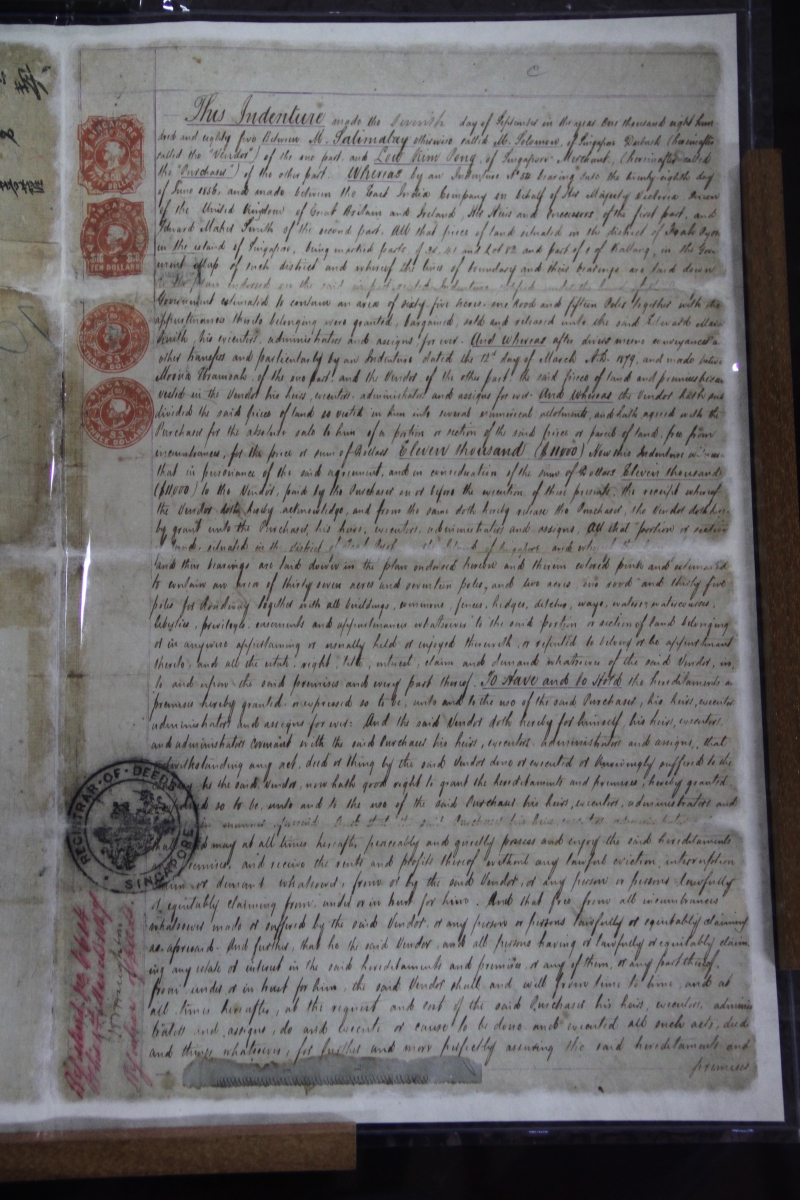 This Indenture made the Seventh day of September in the year One thousand eight hun
dred and eighty five Between M. Salimalay otherwise called M. Solomon, of Singapore (hereinafter
called the "Vendor") of the one part, and Low Kim Pong, of Singapore Merchant, (hereinafter called
the "Purchaser") of the other part. Whereas by an Indenture No bearing date the twenty eighth day
of June 1856, and made between the East India Company on behalf of Her Majesty Victoria Queen
of the United Kingdom of Great Britain and Ireland, Her Heirs and Successors of the first part, and
Edward of the second part. All that piece of land situated in the district of
in the island of Singapore, being marked parts of and part of in the Gov
ernment Map of such district and whereof the lines of boundary and their bearings are laid down
in the plan indorsed on the said Indenture
Government estimated to contain an area of sixty five acres one rood and fifteen Poles together with the
appurtenances thereto belonging were granted, bargained, sold and released unto the said Edward
his executors, administrators and assigns for ever. And Whereas after divers mesne conveyances &
other transfers and particularly by an Indenture dated the 12th day of March A.D. 1879, and made betwe
of the one part, and the Vendor of the other part, the said pieces of land and premises became
vested in the Vendor his heirs, executors, administrators and assigns for ever. And Whereas the Vendor hath sub
divided the said pieces of land so vested in him into several allotments, and hath agreed with the
Purchaser for the absolute sale to him of a portion or section of the said piece or parcel of land, free from
incumbrances, for the price or sum of Dollars Eleven thousand ($11000) Now this Indenture
that in pursuance of the said agreement, and in consideration of the sum of Dollars Eleven thousand
($11000) to the Vendor, paid by the Purchaser on or before the execution of these presents, the receipt whereof
the Vendor doth hereby acknowledge, and from the same doth hereby release the Purchaser, the Vendor doth here
by grant unto the Purchaser, his heirs, executors, administrators and assigns, All that portion or section
of land situated in the District of of Singapore, and
and their bearings are laid down in the plan endorsed hereon and therein colored pink and estimated
to contain an area of thirty seven acres and seventeen poles, and two acres one rood and thirty five
poles for Roadway together with all buildings, commons, fences, hedges, ditches, ways, waters, watercourses,
liberties, privileges, easements and appurtenances whatsoever to the said portion or section of land belonging
or in anywise appertaining or usually held or enjoyed therewith, or reputed to belong or be appurtenant
thereto; and all the estate, right, title, interest, claim and demand whatsoever of the said Vendor, in,
to and upon the said premises and every part thereof. To Have and to Hold the hereditaments &
premises hereby granted or expressed so to be, unto and to the use of the said Purchaser, his heirs, executors
administrators and assigns for ever: And the said Vendor doth hereby for himself, his heirs, executors
and administrators covenant with the said Purchaser his heirs, executors, administrators and assigns, that
notwithstanding any act, deed or thing by the said Vendor done or executed or knowingly suffered to the
he the said Vendor, now hath good right to grant the hereditaments and premises, hereby granted
so to be, unto and to the use of the said Purchaser his heirs, executors, administrators and
in manner aforesaid And that the said Purchaser his heirs executors
may at all times hereafter peaceably and quietly possess and enjoy the said hereditaments
premises, and receive the rents and profits thereof without any lawful eviction, interruption
or demand whatsoever, from or by the said Vendor, or any person or persons lawfully
or equitably claiming from, under or in trust for him. And that free from all incumbrances
whatsoever made or suffered by the said Vendor, or any person or persons lawfully or equitably claiming
as aforesaid. And further, that he the said Vendor, and all persons having or lawfully or equitably claim
ing any estate or interest in the said hereditaments and premises or any of them, or any part thereof,
from under or in trust for him, the said Vendor shall and will from time to time, and at
all times hereafter, at the request and cost of the said Purchaser his heirs, executors, adminis
trators and assigns, do and execute or cause to be done and executed all such acts, deeds
and things whatsoever, for further and more perfectly assuring the said hereditaments and
premises
SINGAPORE
TEN DOLLARS
$10
THREE DOLLARS
$3
THREE DOLLARS
$3
REGISTRAR·OF·DEEDS
SINGAPORE